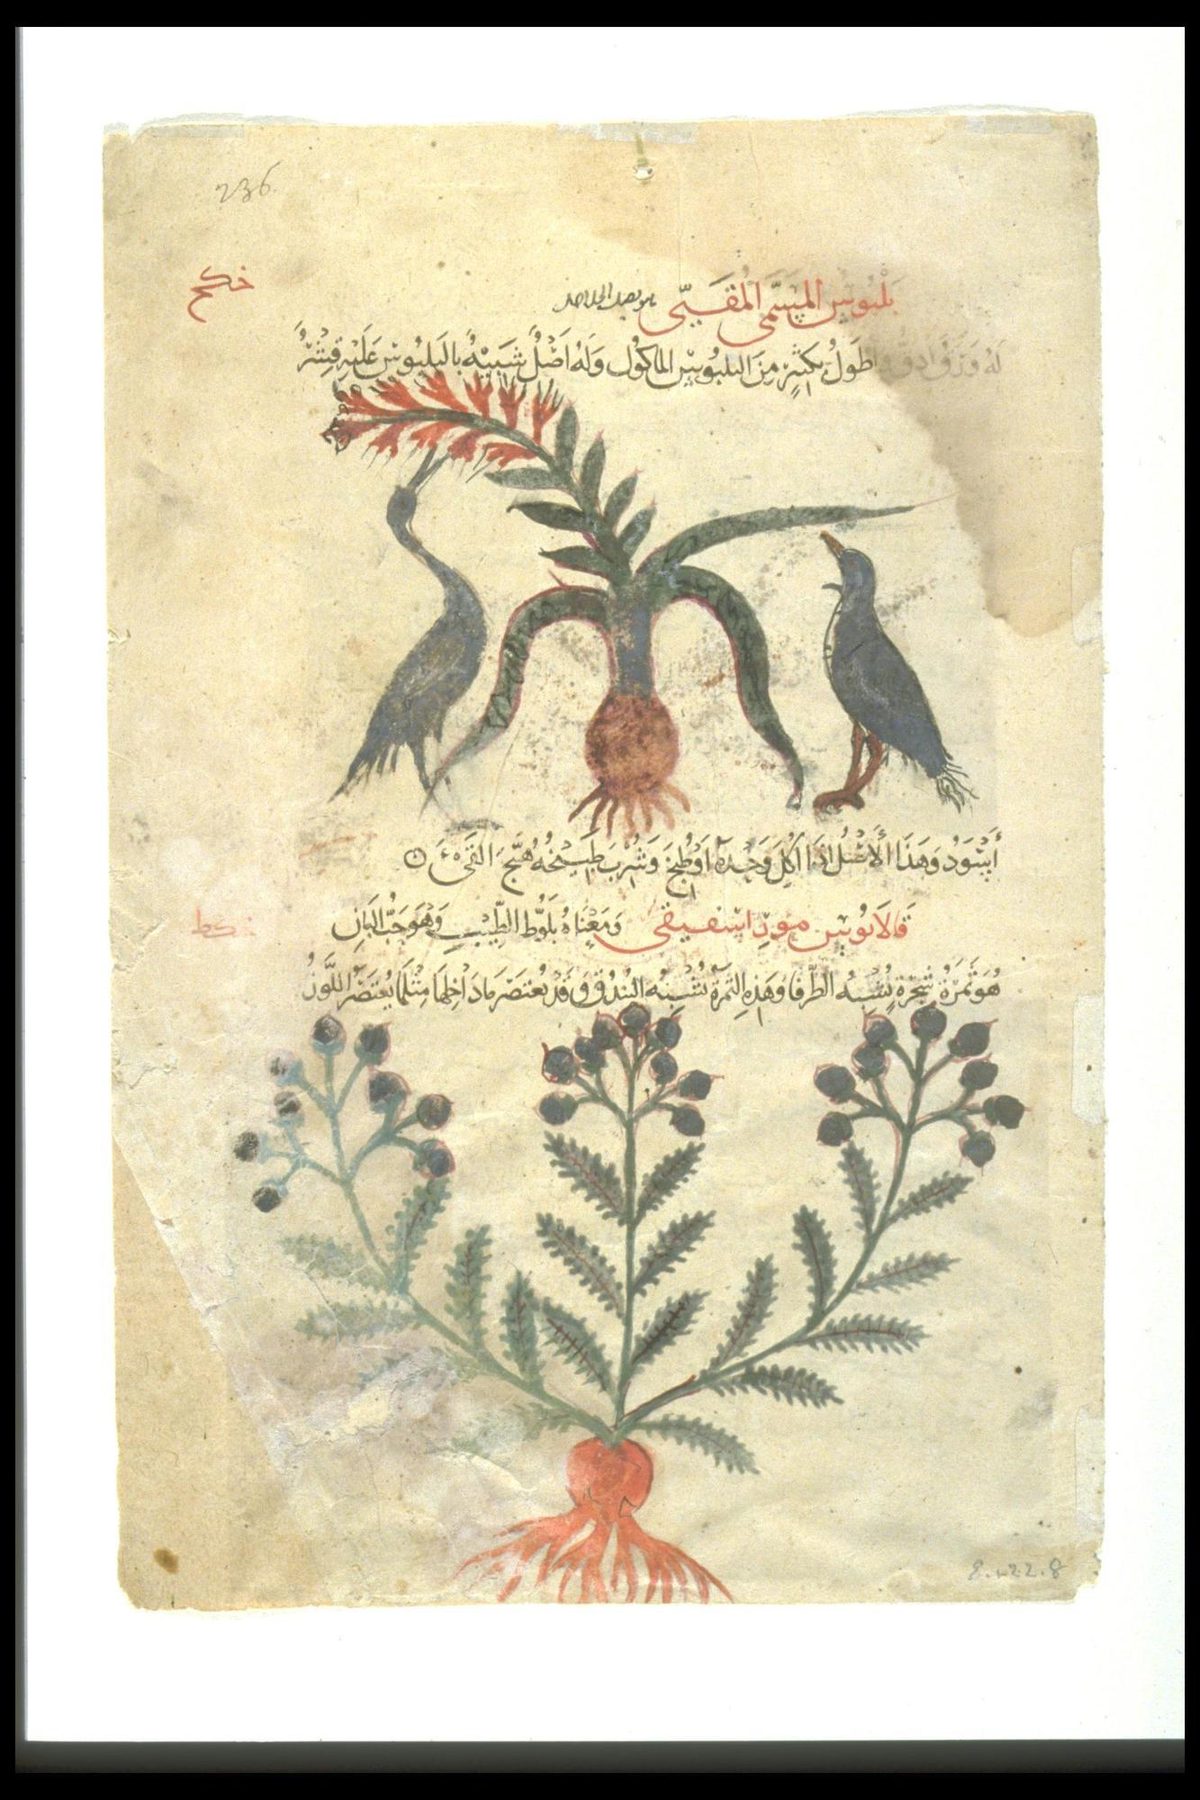 236
خكح
بَلْبُوس المسَمَّى المُقَيِّى
لَهُ وَرَقٌ اطوَلُ بكَثِيْرٍ مِنَ البلبُوسِ الماكُول وَلهُ اصْلٌ شبِيْهٌ بالبلبُوسِ عَلَيْهِ قِشْرٌ
أَسْوَدُ وَهَذَا الأَصْلُ اذَا اكلَ وَحْدهُ اوَطُبِخَ وَشُرِبَ طَبِيْخهُ هيَّجَ القَىْءَ
خكط
قَالانُوس مورِاسفيقى وَمعْنَاهُ بَلُّوط الطِّيْبِ وَهْوَحَبُّ البَانِ
هُوَ ثَمَرَةُ شجَرَةٍ تُشبهُ الطَّرْفا وَهَذِهِ الثمرَةُ تُشْبهُ البُنْدُقَ وَقَدْ يُعتَصَرُ مَا دَاخِلهَا مِثْلَمَا يُعتَصَرُ اللَّوْزُ
8.422.8